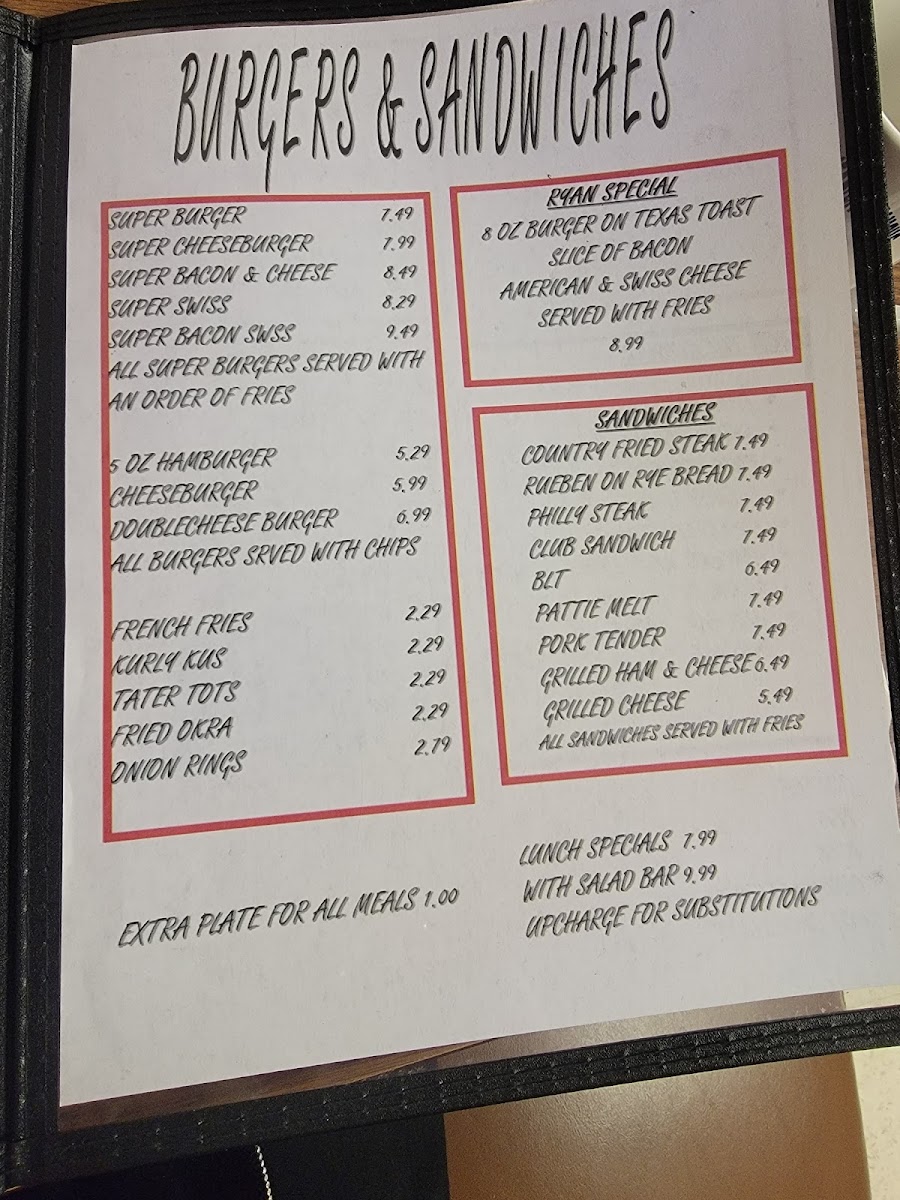 BURGERS & SANDWICHES
SUPER BURGER 7.49
SUPER CHEESEBURGER 7.99
SUPER BACON & CHEESE 8.49
SUPER SWISS 8.29
SUPER BACON SWSS 9.49
ALL SUPER BURGERS SERVED WITH
AN ORDER OF FRIES
5 OZ HAMBURGER 5.29
CHEESEBURGER 5.99
DOUBLECHEESE BURGER 6.99
ALL BURGERS SRVED WITH CHIPS
FRENCH FRIES 2.29
KURLY KUS 2.29
TATER TOTS 2.29
FRIED OKRA 2.29
ONION RINGS 2.79
RYAN SPECIAL
8 OZ BURGER ON TEXAS TOAST
SLICE OF BACON
AMERICAN & SWISS CHEESE
SERVED WITH FRIES
8.99
SANDWICHES
COUNTRY FRIED STEAK 7.49
RUEBEN ON RYE BREAD 7.49
PHILLY STEAK 7.49
CLUB SANDWICH 7.49
BLT 6.49
PATTIE MELT 7.49
PORK TENDER 7.49
GRILLED HAM & CHEESE 6.49
GRILLED CHEESE 5.49
ALL SANDWICHES SERVED WITH FRIES
EXTRA PLATE FOR ALL MEALS 1.00
LUNCH SPECIALS 7.99
WITH SALAD BAR 9.99
UPCHARGE FOR SUBSTITUTIONS